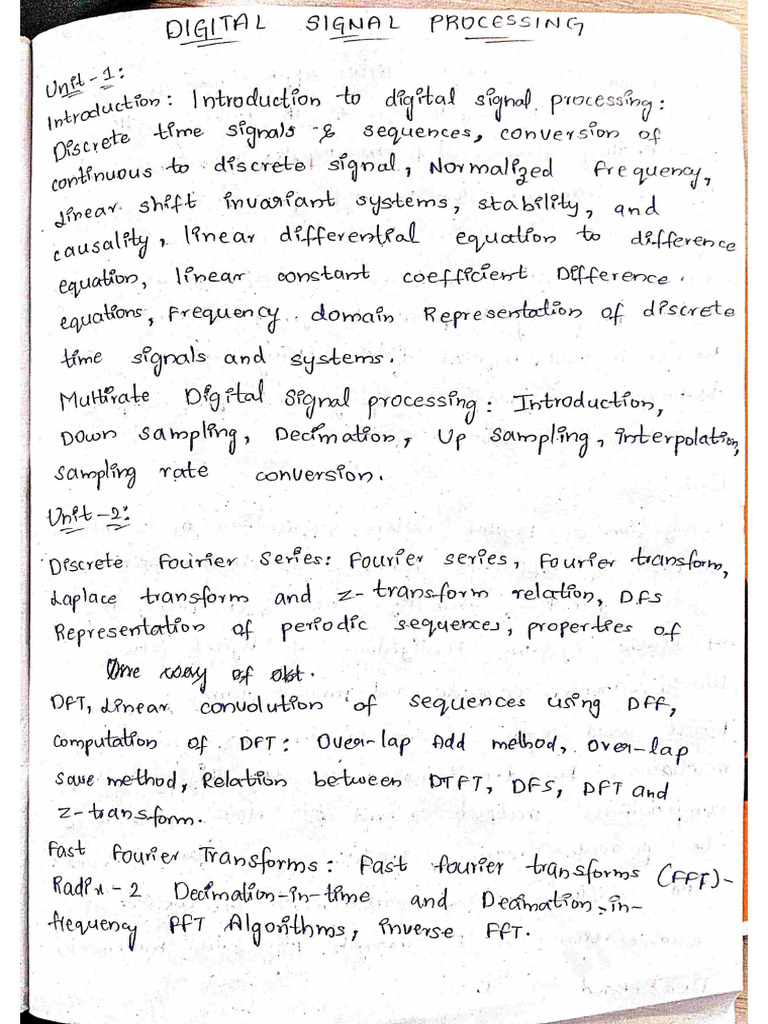 DIGITAL SIGNAL PROCESSING
Unit-1:
Introduction: Introduction to digital signal processing:
Discrete time signals & sequences, conversion of
continuous to discrete signal, Normalized frequency,
Linear shift invariant systems, stability, and
causality, linear differential equation to difference
equation, linear constant coefficient Difference.
equations, frequency domain Representation of discrete
time signals and systems.
Multirate Digital Signal processing: Introduction,
Down sampling, Decimation, Up sampling, interpolation,
sampling rate conversion.
Unit-2:
Discrete Fourier Series: Fourier series, Fourier transform,
Laplace transform and z-transform relation, DFS
Representation of periodic sequences, properties of
One way of obt.
DFT, Linear convolution of sequences using DFF,
computation of DFT: Over-lap Add method, over-lap
save method, Relation between DTFT, DFS, DFT and
z-transform.
Fast Fourier Transforms: Fast fourier transforms (FFT)-
Radix-2 Decimation-in-time and Decimation-in-
frequency FFT Algorithms, inverse FFT.